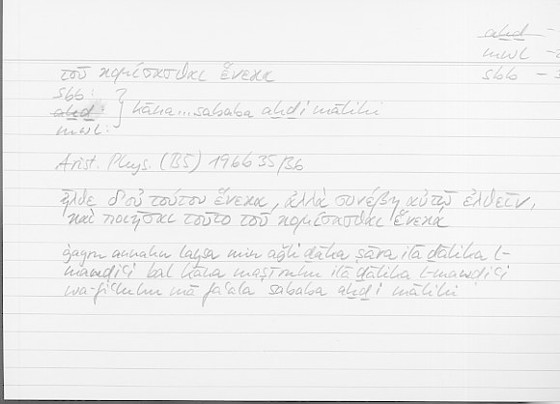 ahd -
mwl -
sbb -
τοῦ κομίσασθαι ἕνεκα
sbb:
ahd: } kāna...sababa aḫḏi mālihi
mwl:
Arist. Phys. (B5) 196b35/36
ἦλθε δ'οὐ τούτου ἕνεκα, ἀλλὰ συνέβη αὐτῷ ἐλθεῖν,
καὶ ποιῆσαι τοῦτο τοῦ κομίσασθαι ἕνεκα
ġayra annahu laysa min aǧli ḏāka ṣāra ilā ḏālika l-
mawḍiʿi bal kāna maṣīruhu ilā ḏālika l-mawḍiʿi
wa-fiʿluhu mā faʿala sababa aḫḏi mālihi